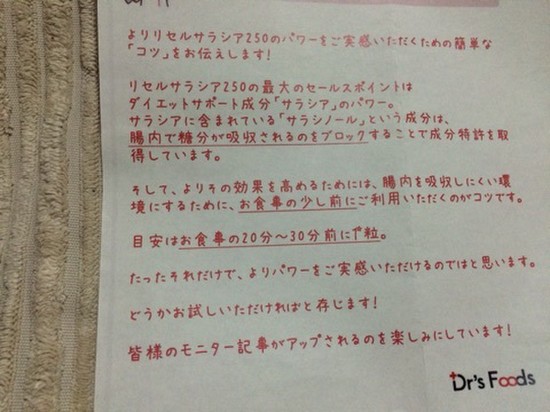 よりリセルサラシア250のパワーをご実感いただくための簡単な
「コツ」をお伝えします！
リセルサラシア250の最大のセールスポイントは
ダイエットサポート成分「サラシア」のパワー。
サラシアに含まれている「サラシノール」という成分は、
腸内で糖分が吸収されるのをブロックすることで成分特許を取
得しています。
そして、よりその効果を高めるためには、腸内を吸収しにくい環
境にするために、お食事の少し前にご利用いただくのがコツです。
目安はお食事の20分～30分前に1粒。
たったそれだけで、よりパワーをご実感いただけるのではと思います。
どうかお試しいただければと存じます！
皆様のモニター記事がアップされるのを楽しみにしています！
Dr's Foods